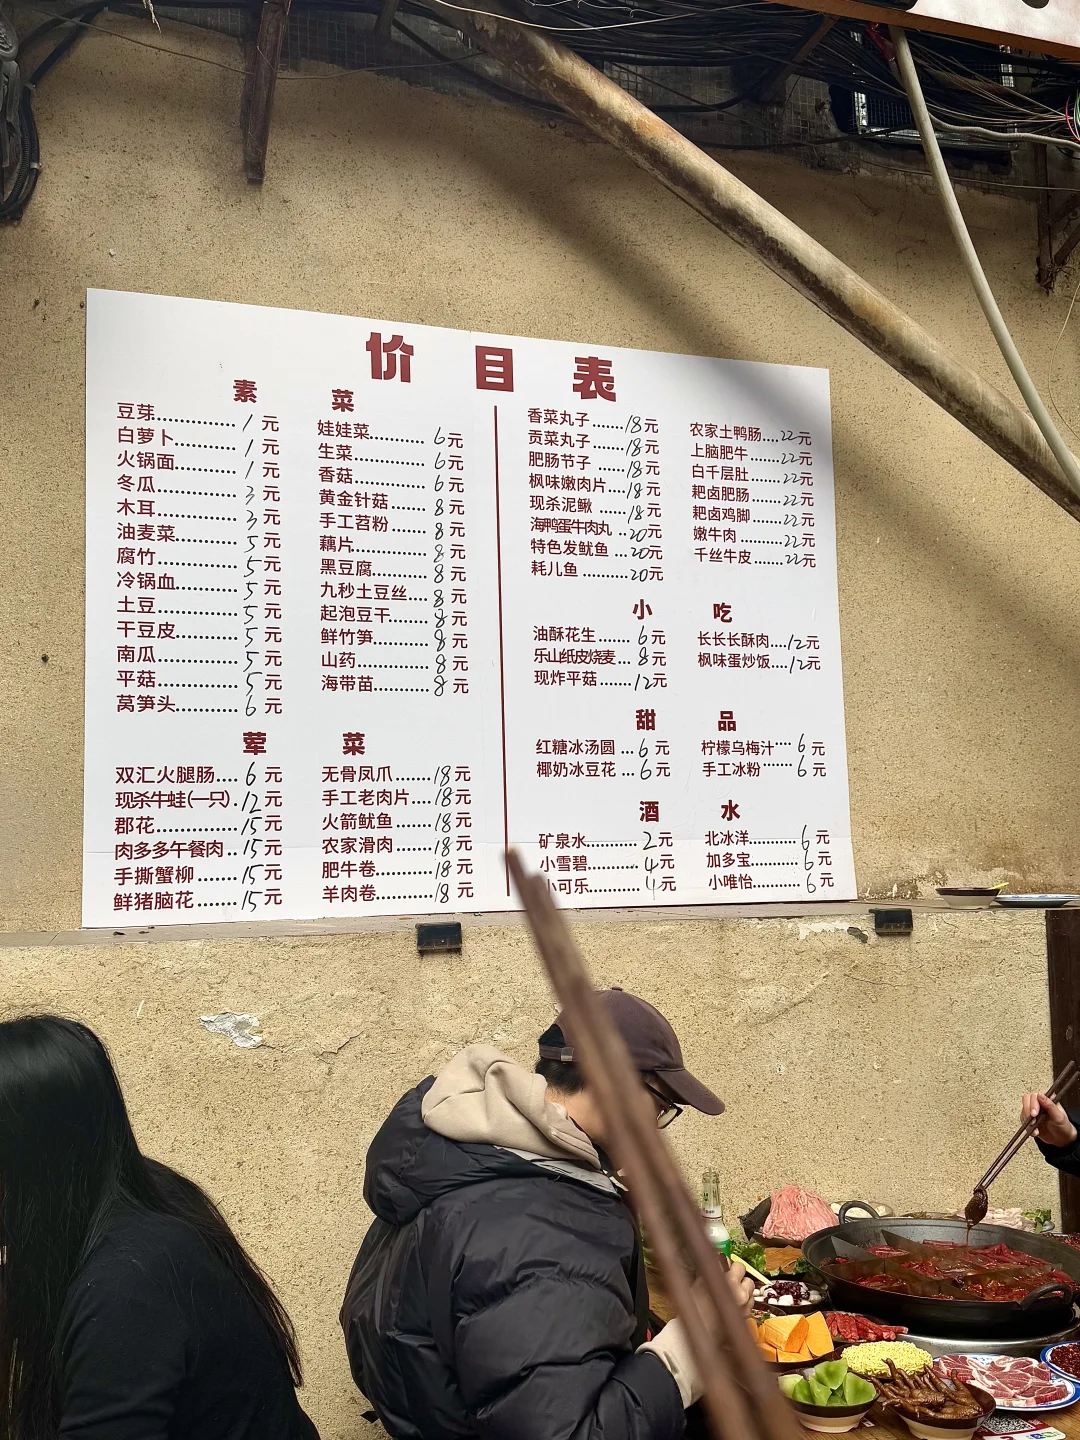 价目表
素菜
豆芽..............1元
白萝卜..............1元
火锅面..............1元
冬瓜..............3元
木耳..............3元
油麦菜..............5元
腐竹..............5元
冷锅血..............5元
土豆..............5元
干豆皮..............5元
南瓜..............5元
平菇..............5元
莴笋头..............6元
娃娃菜..........6元
生菜..............6元
香菇..............6元
黄金针菇.......8元
手工苕粉.......8元
藕片..............8元
黑豆腐..........8元
九秒土豆丝....8元
起泡豆干.......8元
鲜竹笋..........8元
山药..............8元
海带苗..........8元
荤菜
双汇火腿肠....6元
现杀牛蛙(一只).12元
郡花..............15元
肉多多午餐肉..15元
手撕蟹柳.......15元
鲜猪脑花.......15元
无骨凤爪.......18元
手工老肉片....18元
火箭鱿鱼.......18元
农家滑肉.......18元
肥牛卷..........18元
羊肉卷..........18元
香菜丸子.......18元
贡菜丸子.......18元
肥肠节子.......18元
枫味嫩肉片....18元
现杀泥鳅.......18元
海鸭蛋牛肉丸..20元
特色发鱿鱼...20元
耗儿鱼..........20元
农家土鸭肠....22元
上脑肥牛.......22元
白千层肚.......22元
耙卤肥肠.......22元
耙卤鸡脚.......22元
嫩牛肉..........22元
千丝牛皮.......22元
小吃
油酥花生.......6元
乐山纸皮烧麦...8元
现炸平菇.......12元
长长长酥肉....12元
枫味蛋炒饭....12元
甜品
红糖冰汤圆...6元
椰奶冰豆花...6元
柠檬乌梅汁....6元
手工冰粉.......6元
酒水
矿泉水..........2元
小雪碧..........4元
小可乐..........4元
北冰洋..........6元
加多宝..........6元
小唯怡..........6元